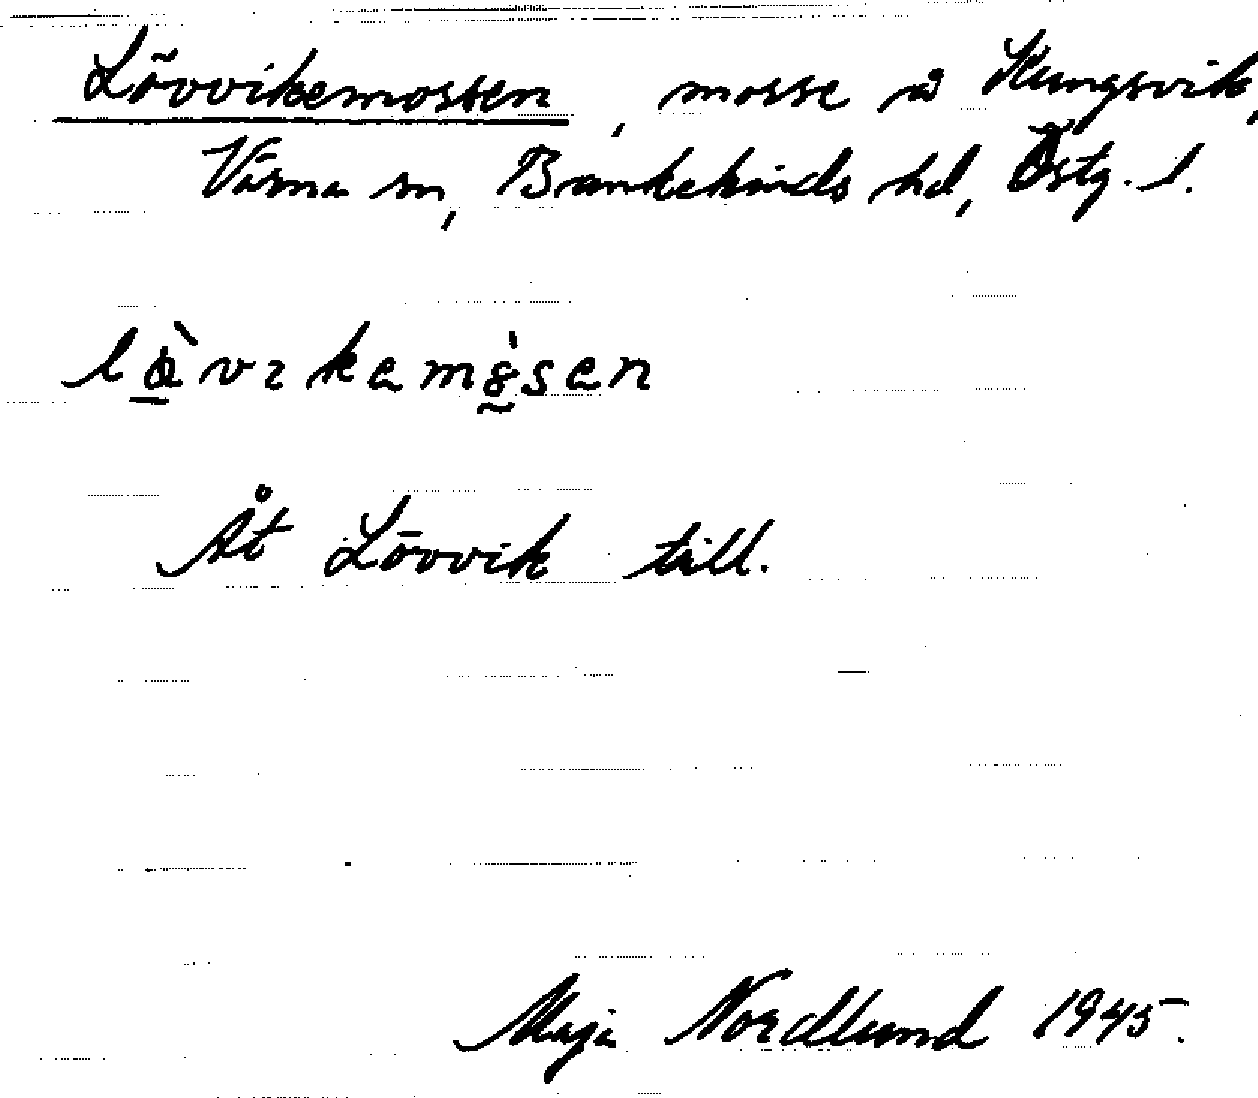 Lövvikemossen, mosse å Kungsvik,
Värna sn, Bankekinds hd, Östg. l.
Åt Lövvik till.
Maja Nordlund 1945.